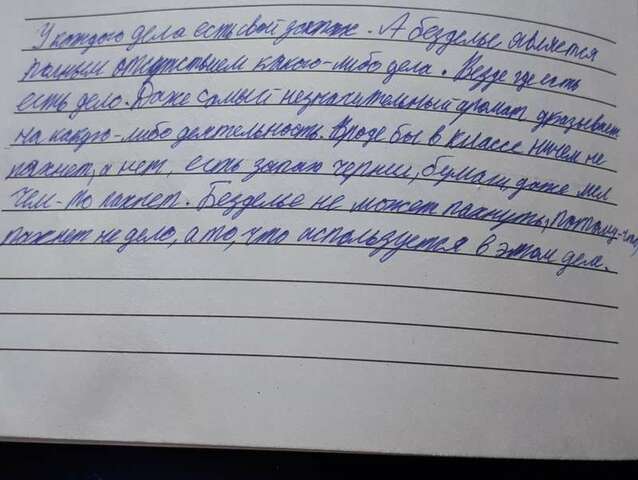 У каждого дела есть свой запах. А безделье является
полным отсутствием какого-либо дела. Везде где есть
есть дело. Даже самый незначительный аромат указывает
на какую-либо деятельность. Вроде бы в классе ничем не
пахнет, а нет, есть запах чернил, бумаги, даже мел
чем-то пахнет. Безделье не может пахнуть, потому-что
пахнет не дело, а то, что используется в этом деле.